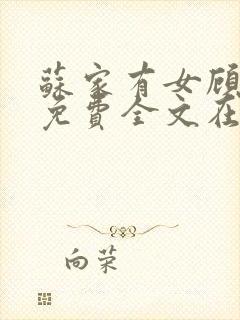 蘇家有女顾
免費全文在
向荣